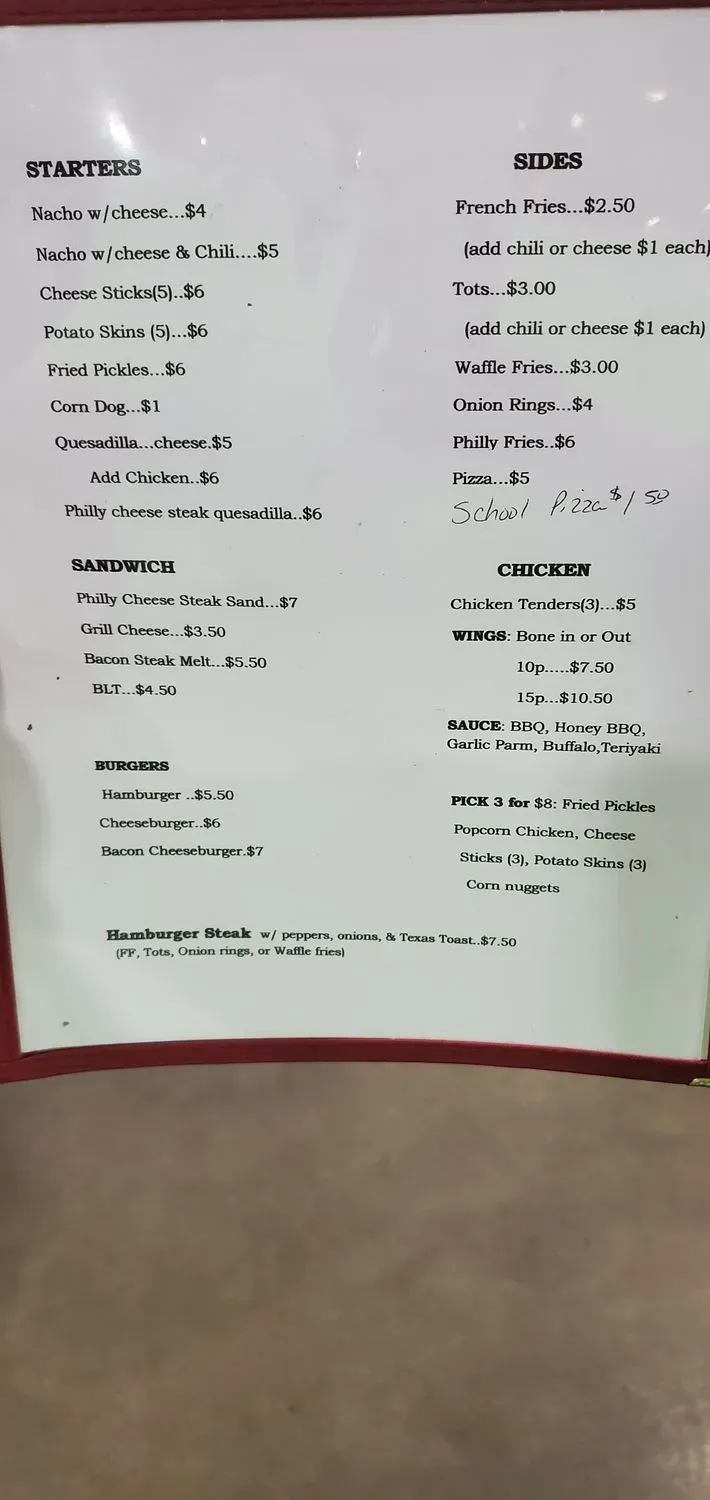 STARTERS
Nacho w/cheese...$4
Nacho w/cheese & Chili....$5
Cheese Sticks(5)..$6
Potato Skins (5)...$6
Fried Pickles...$6
Corn Dog...$1
Quesadilla...cheese.$5
Add Chicken..$6
Philly cheese steak quesadilla..$6
SANDWICH
Philly Cheese Steak Sand...$7
Grill Cheese...$3.50
Bacon Steak Melt...$5.50
BLT...$4.50
BURGERS
Hamburger ..$5.50
Cheeseburger..$6
Bacon Cheeseburger.$7
SIDES
French Fries...$2.50
(add chili or cheese $1 each)
Tots...$3.00
(add chili or cheese $1 each)
Waffle Fries...$3.00
Onion Rings...$4
Philly Fries..$6
Pizza...$5
School Pizza $1 50
CHICKEN
Chicken Tenders(3)...$5
WINGS: Bone in or Out
10p.....$7.50
15p...$10.50
SAUCE: BBQ, Honey BBQ,
Garlic Parm, Buffalo,Teriyaki
PICK 3 for $8: Fried Pickles
Popcorn Chicken, Cheese
Sticks (3), Potato Skins (3)
Corn nuggets
Hamburger Steak w/ peppers, onions, & Texas Toast..$7.50
(FF, Tots, Onion rings, or Waffle fries)